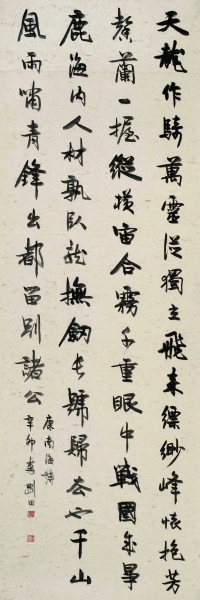 天龍作騎萬靈從獨立飛來縹緲峰懷抱芳
馨蘭一握縱橫宙合霧千重眼中戰國成爭
鹿海內人材孰臥龍撫劍長號歸去也千山
風雨嘯青鋒出都留別諸公
康南海詩
辛卯春劉田